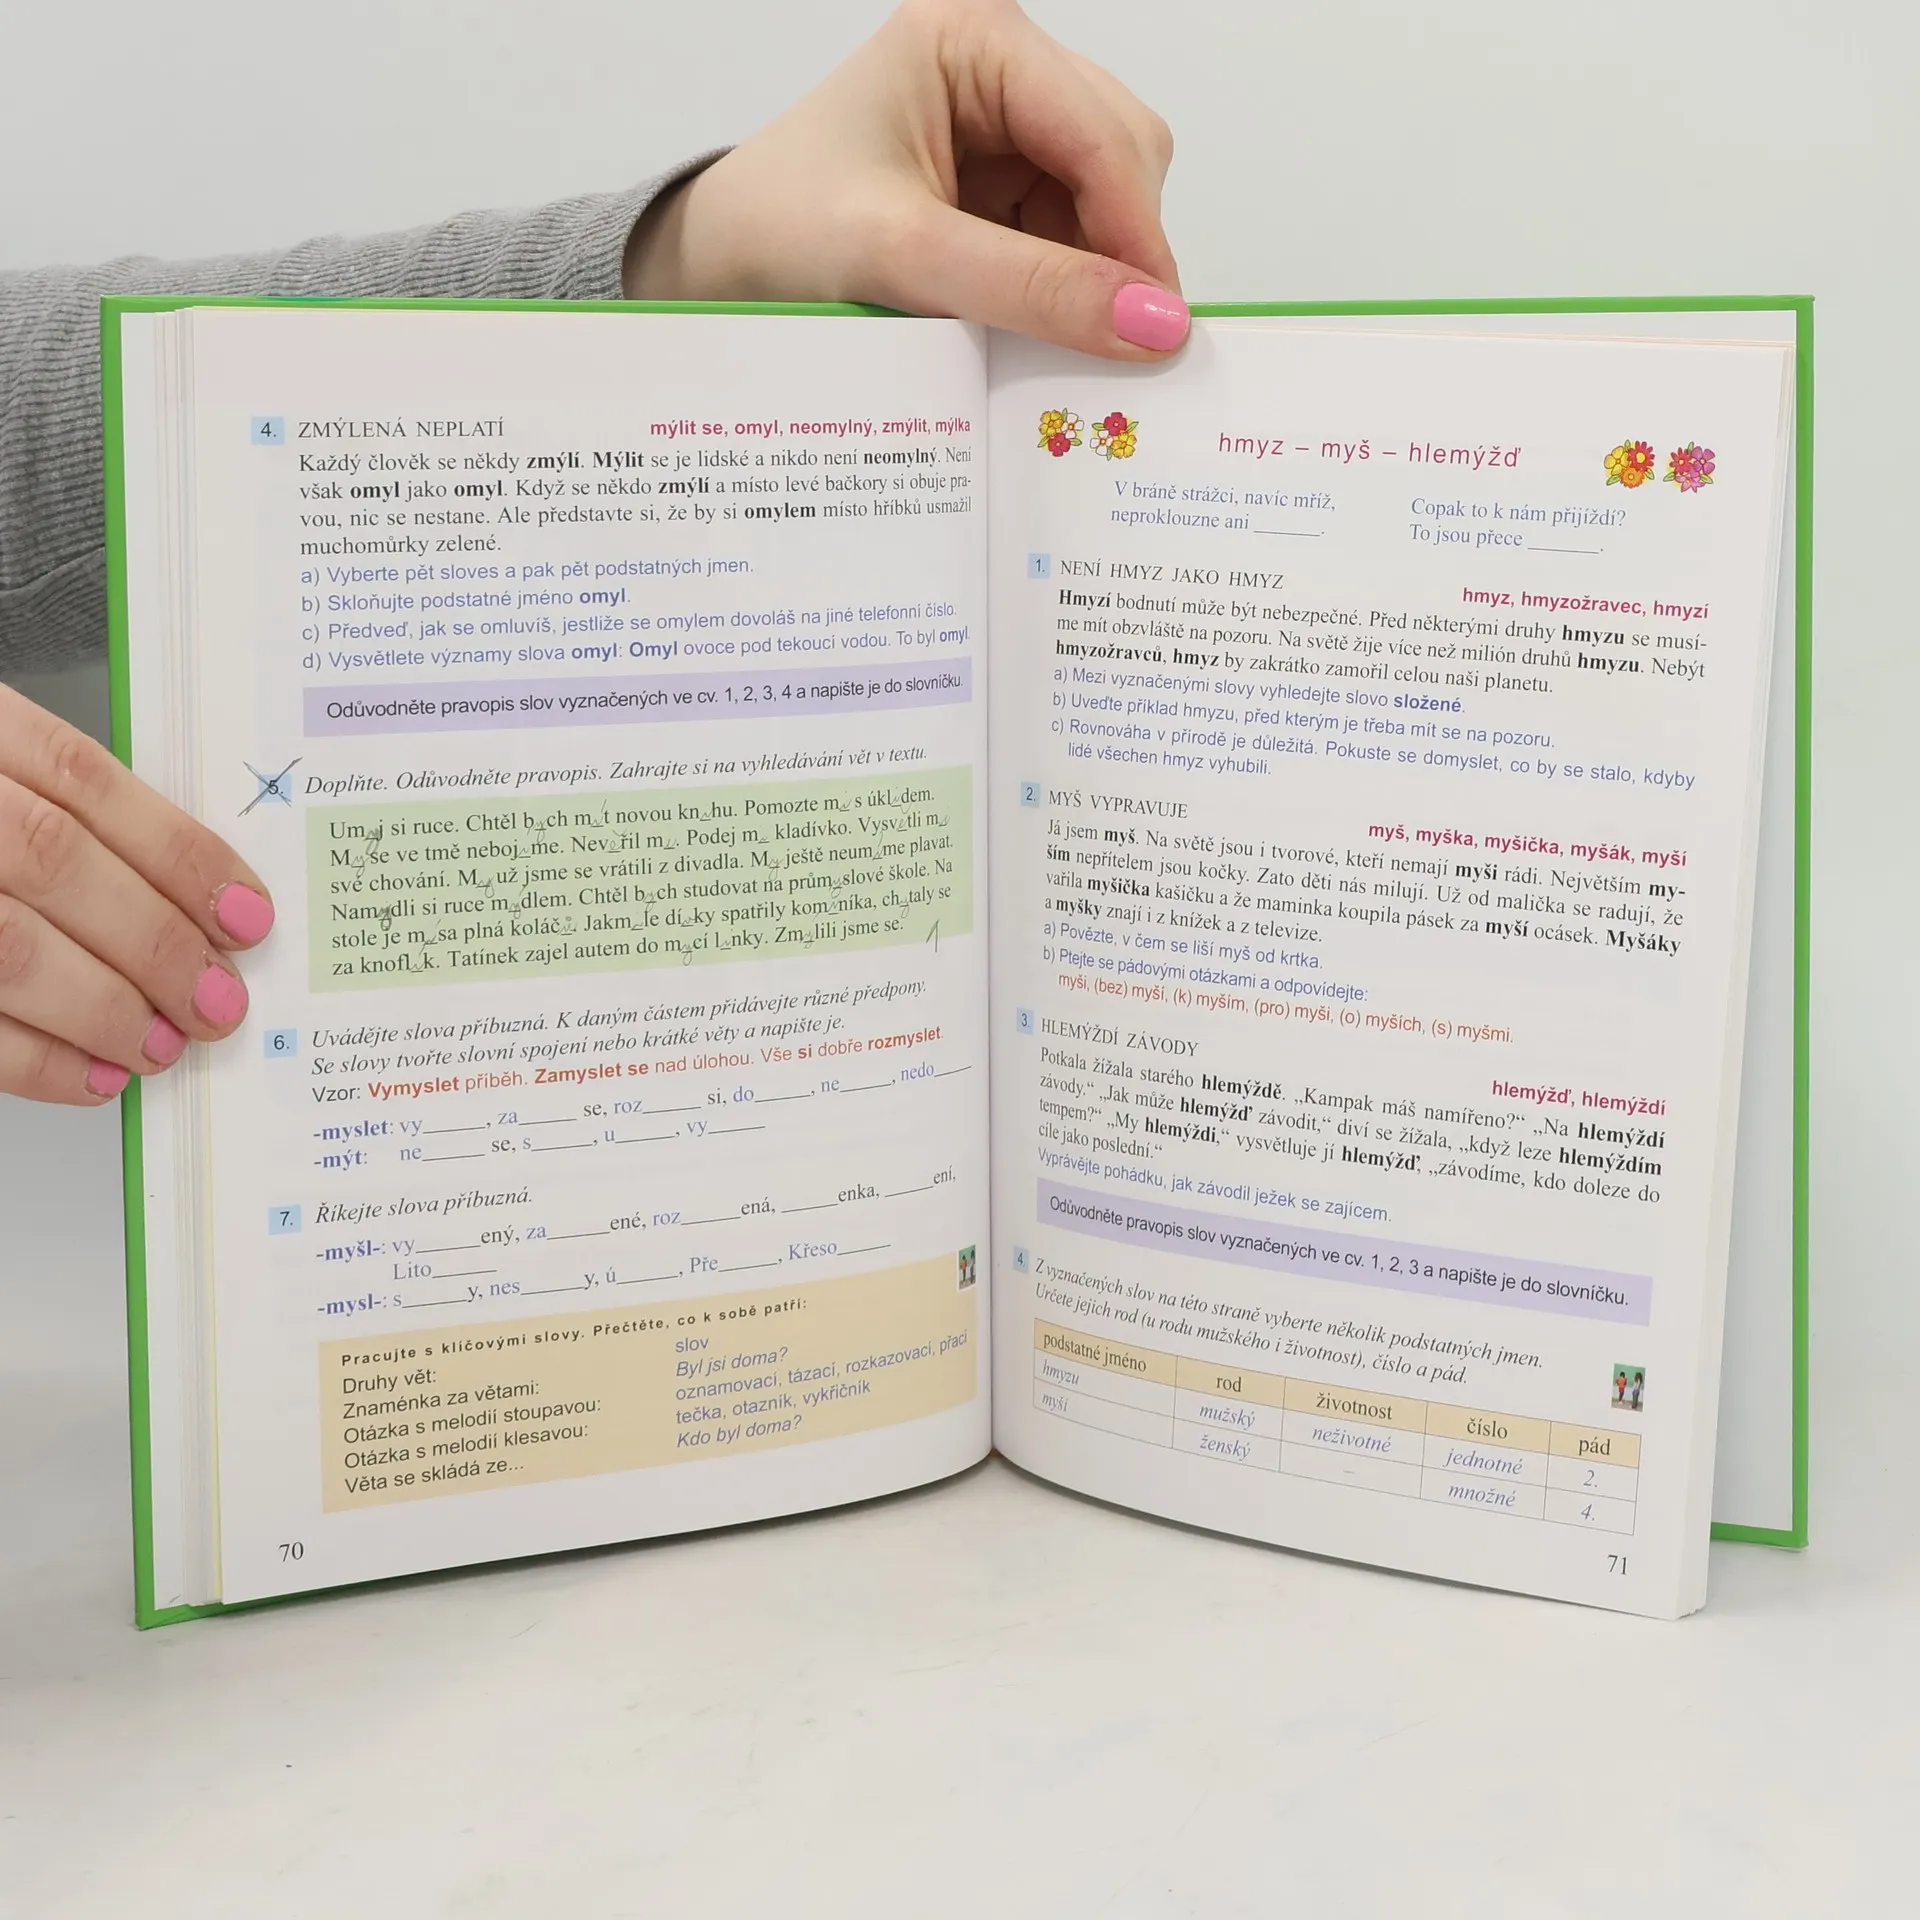 4. ZMÝLENÁ NEPLATÍ
mýlit se, omyl, neomylný, zmýlit, mýlka
Každý člověk se někdy zmýlí. Mýlit se je lidské a nikdo není neomylný. Není
však omyl jako omyl. Když se někdo zmýlí a místo levé bačkory si obuje pra-
vou, nic se nestane. Ale představte si, že by si omylem místo hříbků usmažil
muchomůrky zelené.
a) Vyberte pět sloves a pak pět podstatných jmen.
b) Skloňujte podstatné jméno omyl.
c) Předveď, jak se omluvíš, jestliže se omylem dovoláš na jiné telefonní číslo.
d) Vysvětlete významy slova omyl: Omyl ovoce pod tekoucí vodou. To byl omyl.
Odůvodněte pravopis slov vyznačených ve cv. 1, 2, 3, 4 a napište je do slovníčku.
5. Doplňte. Odůvodněte pravopis. Zahrajte si na vyhledávání vět v textu.
Um_j si ruce. Chtěl b_ch m_t novou kn_hu. Pomozte m_ s úkl_dem.
M_ se ve tmě neboj_me. Nev_řil m_. Podej m_ kladívko. Vysv_tli m_
své chování. M_ už jsme se vrátili z divadla. M_ ještě neum_me plavat.
Nam_dli si ruce m_dlem. Chtěl b_ch studovat na prům_slové škole. Na
stole je m_sa plná koláč_. Jakm_le dí_ky spatřily kom_níka, ch_taly se
za knofl_k. Tatínek zajel autem do m_cí l_nky. Zm_lili jsme se.
6. Uvádějte slova příbuzná. K daným částem přidávejte různé předpony.
Se slovy tvořte slovní spojení nebo krátké věty a napište je.
Vzor: Vymyslet příběh. Zamyslet se nad úlohou. Vše si dobře rozmyslet.
-myslet: vy______, za______ se, roz______ si, do______, ne______, nedo____
-mýt: ne______ se, s______, u______, vy______
7. Říkejte slova příbuzná.
-myšl-: vy______ený, za______ené, roz______ená, ______enka, _____ení,
Lito______
-mysl-: s______y, nes______y, ú______, Pře______, Křeso______
Pracujte s klíčovými slovy. Přečtěte, co k sobě patří:
Druhy vět:
Znaménka za větami:
Otázka s melodií stoupavou:
Otázka s melodií klesavou:
Věta se skládá ze...
slov
Byl jsi doma?
oznamovací, tázací, rozkazovací, přací
tečka, otazník, vykřičník
Kdo byl doma?
70
hmyz – myš – hlemýžď
V bráně strážci, navíc mříž,
neproklouzne ani _______.
Copak to k nám přijíždí?
To jsou přece _______.
1. NENÍ HMYZ JAKO HMYZ
hmyz, hmyzožravec, hmyzí
Hmyzí bodnutí může být nebezpečné. Před některými druhy hmyzu se musí-
me mít obzvláště na pozoru. Na světě žije více než milión druhů hmyzu. Nebýt
hmyzožravců, hmyz by zakrátko zamořil celou naši planetu.
a) Mezi vyznačenými slovy vyhledejte slovo složené.
b) Uveďte příklad hmyzu, před kterým je třeba mít se na pozoru.
c) Rovnováha v přírodě je důležitá. Pokuste se domyslet, co by se stalo, kdyby
lidé všechen hmyz vyhubili.
2. MYŠ VYPRAVUJE
myš, myška, myšička, myšák, myší
Já jsem myš. Na světě jsou i tvorové, kteří nemají myši rádi. Největším my-
ším nepřítelem jsou kočky. Zato děti nás milují. Už od malička se radují, že
vařila myšička kašičku a že maminka koupila pásek za myší ocásek. Myšáky
a myšky znají i z knížek a z televize.
a) Povězte, v čem se liší myš od krtka.
b) Ptejte se pádovými otázkami a odpovídejte:
myši, (bez) myší, (k) myším, (pro) myši, (o) myších, (s) myšmi.
3. HLEMÝŽDÍ ZÁVODY
hlemýžď, hlemýždí
Potkala žížala starého hlemýždě. „Kampak máš namířeno?“ „Na hlemýždí
závody.“ „Jak může hlemýžď závodit,“ diví se žížala, „když leze hlemýždím
tempem?“ „My hlemýždi,“ vysvětluje jí hlemýžď, „závodíme, kdo doleze do
cíle jako poslední.“
Vyprávějte pohádku, jak závodil ježek se zajícem.
Odůvodněte pravopis slov vyznačených ve cv. 1, 2, 3 a napište je do slovníčku.
4. Z vyznačených slov na této straně vyberte několik podstatných jmen.
Určete jejich rod (u rodu mužského i životnost), číslo a pád.
podstatné jméno rod životnost číslo pád
hmyzu mužský neživotné jednotné 2.
myši ženský – množné 4.
71